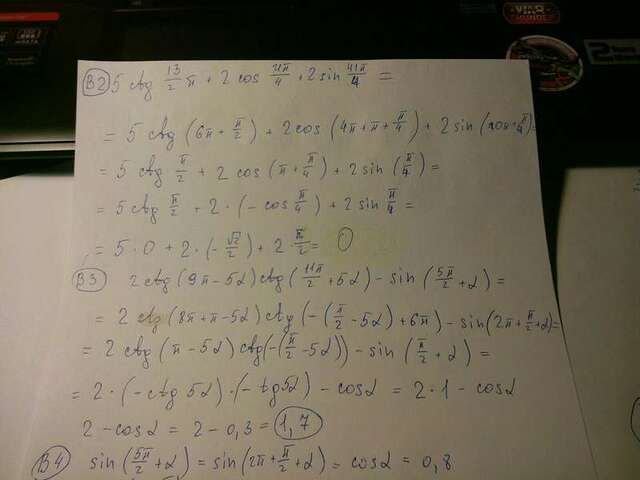 В2 5 ctg 13/2 π + 2 cos 21π/4 + 2 sin 41π/4 =
= 5 ctg (6π + π/2) + 2cos (4π + π + π/4) + 2 sin (10π + π/4) =
= 5 ctg π/2 + 2 cos (π + π/4) + 2 sin (π/4) =
= 5 ctg π/2 + 2 · (- cos π/4) + 2 sin π/4 =
= 5 · 0 + 2 · (- √2/2) + 2 · √2/2 = 0
В3 2 ctg (9π - 5α) ctg (11π/2 + 5α) - sin (5π/2 + α) =
= 2 ctg (8π + π - 5α) ctg (-(π/2 - 5α) + 6π) - sin (2π + π/2 + α) =
= 2 ctg (π - 5α) ctg (-(π/2 - 5α)) - sin (π/2 + α) =
= 2 · (- ctg 5α) · (- tg 5α) - cos α = 2 · 1 - cos α
2 - cos α = 2 - 0,3 = 1,7
В4 sin (5π/2 + α) = sin (2π + π/2 + α) = cos α = 0,8